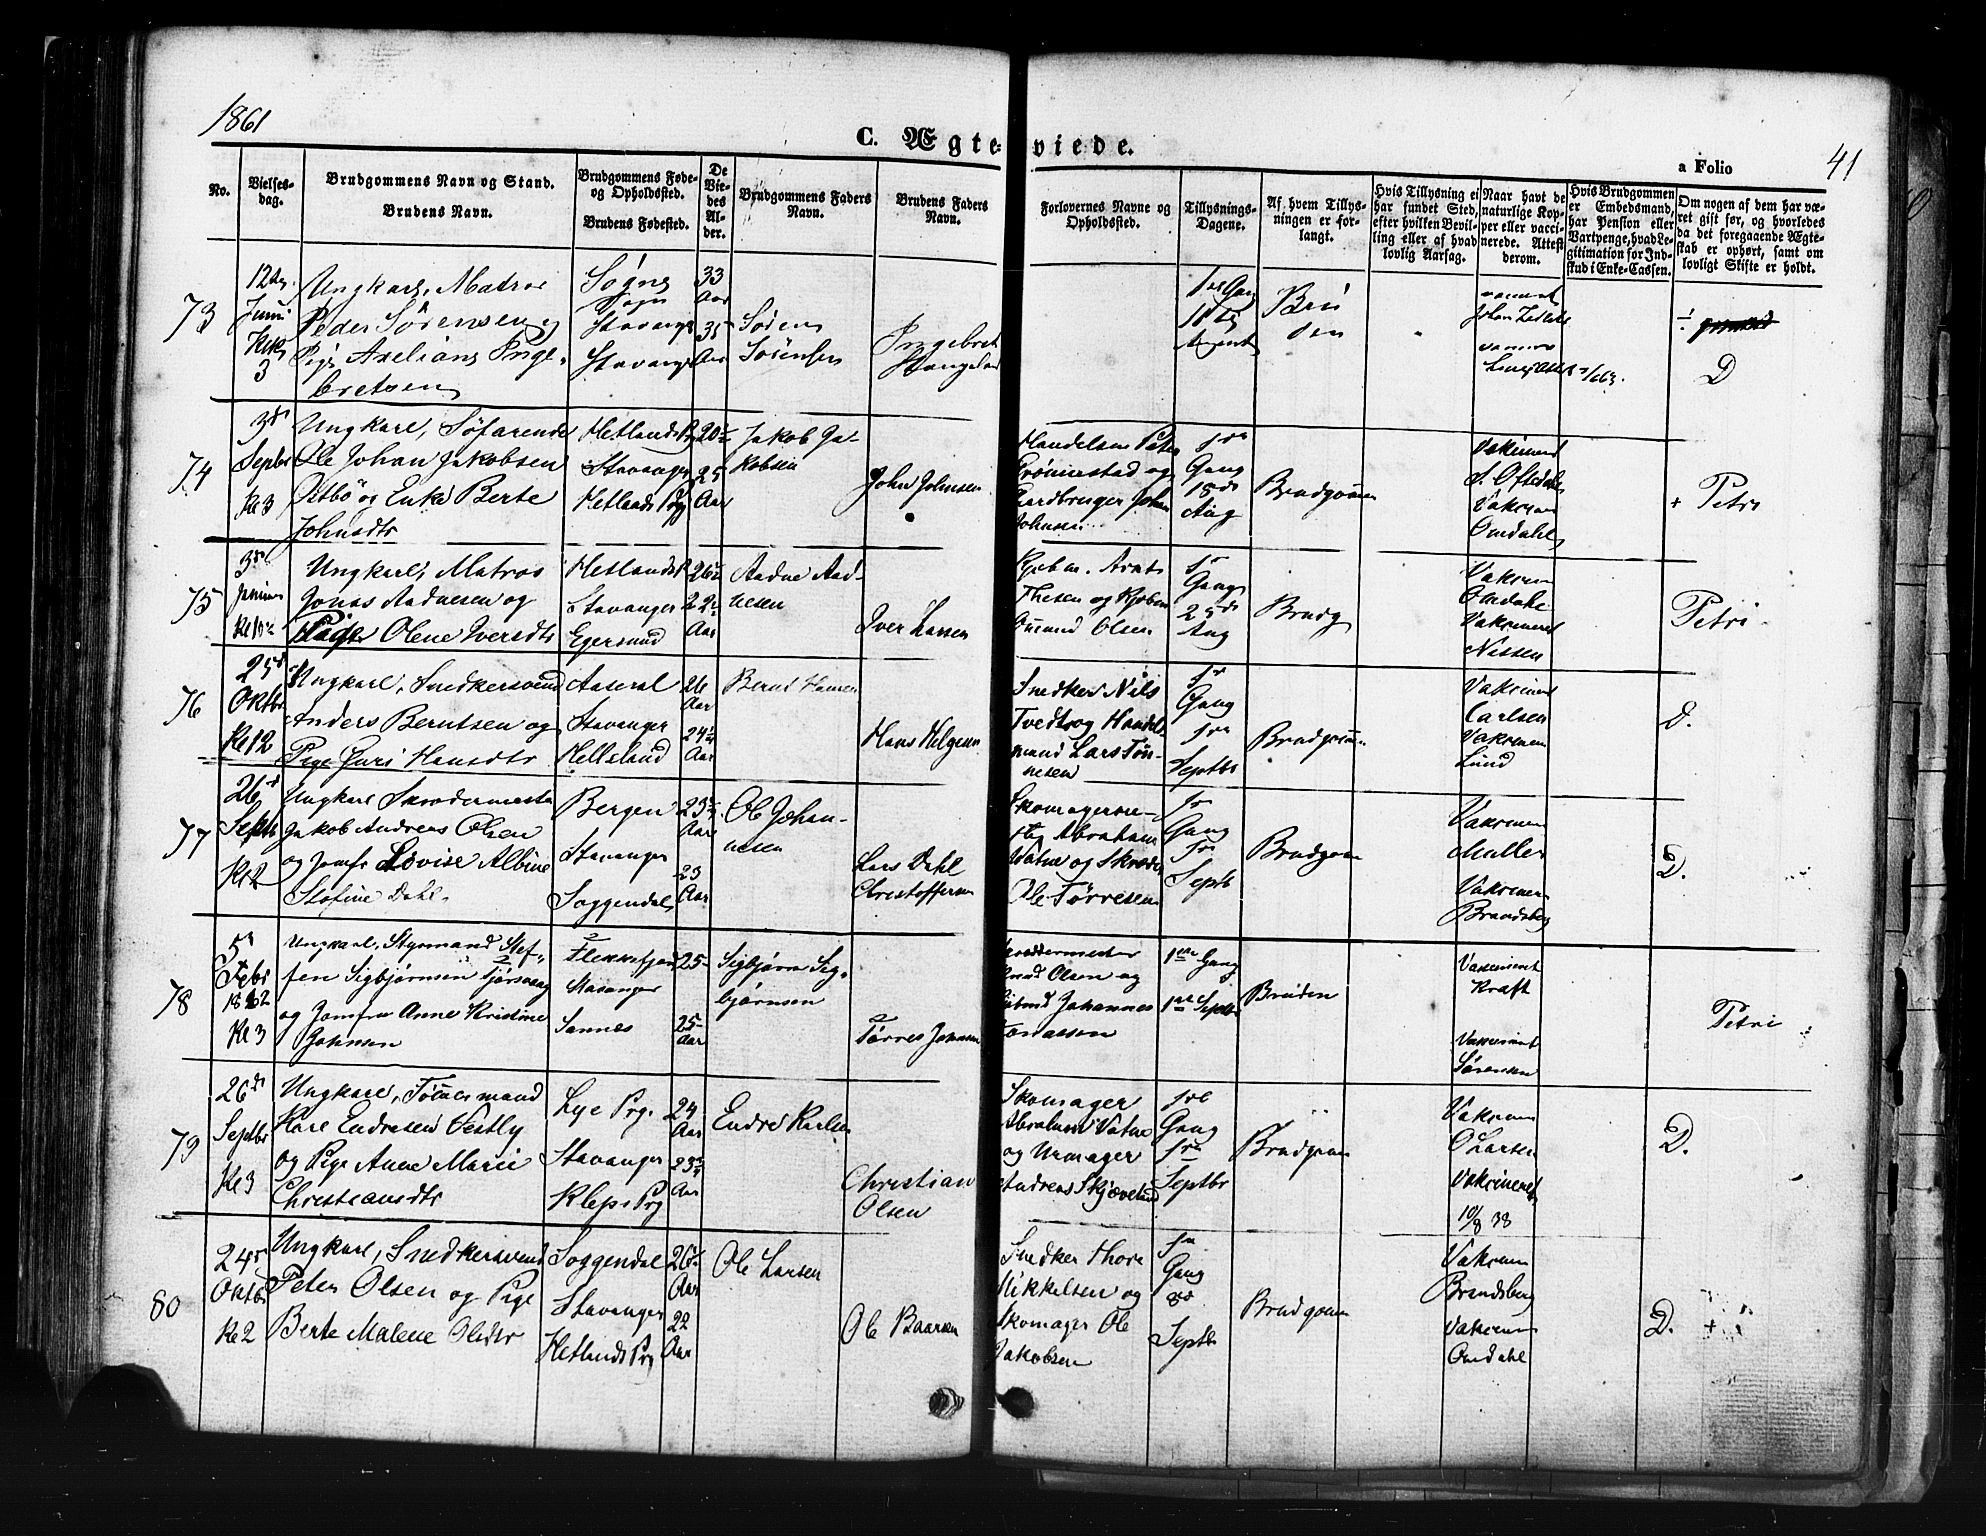 1861
C. Ægte-viede.
a Folio 41
No.
Vielses-
dag.
Brudgommens Navn og Stand.
Brudens Navn.
Brudgommens Føde-
og Opholdssted.
Brudens Fødested.
De
Vie-
des
Al-
der.
Brudgommens Faders
Navn.
Brudens Faders
Navn.
Forlovernes Navne og
Opholdssted.
Tillysnings-
Dagene.
Af hvem Tillys-
ningen er for-
langt.
Hvis Tillysning ei
har fundet Sted,
efter hvilken Bevil-
ling eller af hvad
lovlig Aarsag.
Naar havt de
naturlige Kop-
per eller vacci-
nerede. Attest
derom.
Hvis Brudgommen
er Embedsmand,
har Pension eller
Vartpenge, hvad Le-
gitimation for Ind-
skud i Enke-Cassen.
Om nogen af dem har væ-
ret gift før, og hvorledes
da det foregaaende Ægte-
skab er ophørt, samt om
lovligt Skifte er holdt.
73
Juni
Kl
3
Ungkarl, Matros
Peder Sörensen og
Pige Axeliane Inge-
bretsen
Sogns
Sogn
Stavanger
Stavanger
33
Aar
35
Aar
Sören
Sörensen
Ingebret
1ste Gang
Bru
den
D
74
3die
Septbr
Kl 3
Ungkarl, Söfarende
Ole Johan Jakobsen
og Enke Berte
Johnsdtr
Hetlands Pg
Stavanger
Hetlands Pg
20½
25
Aar
Jakob Ja-
kobsen
John Johnsen
Handelsm Peter
Grönnestad og
Gardbruger Johan
Johnsen
1ste
Gang
18de
Aug
Brudgommen
Vakcineret
S. Oftedahl
Vakcineret
Omdahl
+ Petri
75
3die
Kl
Ungkarl, Matros
Jonas Aadnesen og
Pige Olene Iversdtr
Hetlands P
Stavanger
Egersund
26½
22½
Aar
Aadne Aad-
nesen
Iver Larsen
Thesen og
Omund Olsen
Gang
25de
Aug
Brudg
Vakcin
Omdahl
Vakcineret
Nissen
Petri
76
25de
Oktbr
Kl 12
Ungkarl, Snedkersvend
Anders Berntsen og
Pige Guri Hansdtr
Aaseral
Stavanger
Helleland
26
Aar
24½
Aar
Bernt Hansen
Hans Helgesen
Snedker Nils
Tvedt og Handels
mand Lars Tön-
nesen
Gang
Septbr
Brudgommen
Vakcineret
Carlsen
Vakcineret
Lund
D.
77
26de
Septbr
Kl 2
Ungkarl Skrædermester
Jakob Andreas Olsen
og Jomfr Lovise Albine
Stofine Dahl.
Bergen
Stavanger
Soggendal
23½
Aar
23
Aar
Ole Johan-
nesen
Lars Dahl
Christoffersen
Skomagerme-
ster Abraham
Vatne og Skræder
Ole Törresen
Gang
Septb
Brudgom
Vakcineret
Müller
Vakciner
Brandsberg
D.
78
5te
Febr
1862
Kl 3
Ungkarl, Styrmand Stef-
fen Sigbjörnsen Tjörsvaag
og Jomfru Anne Kristine
Johnsen
Flekkefjord
Stavanger
Sannes
25
25
Aar
Sigbjörn Sig-
björnsen
Törres Johnsen
Skrædermester
Knud Olsen og
Johannes
Tönnesson
1ste Gang
1ste Septbr
Bruden
Vakcineret
Kraft
Vakcineret
Sörensen
Petri
79
26de
Septbr
Kl 3
Ungkarl, Tömmermand
Kare Endresen Vestly
og Pige Anne Marie
Christiansdtr
Lye Prg.
Stavanger
Kleps Prg
24
Aar
23½
Aar
Endre Karlsen
Christian
Olsen
Skomager
Abraham Vatne
og Urmager
Andreas Skjæveland
1ste
Gang
Septbr
Brudgom
Vakcineret
O Larsen
Vakcineret
10/8 38
D.
80
24de
Oktbr
Kl 2
Ungkarl, Snedkersvend
Peter Olsen og Pige
Berte Malene Olsdtr
Soggendal
Stavanger
Hetlands Prg
26½
Aar
22
Aar
Ole Larsen
Ole Baarsen
Snedker Thore
Mikkelsen og
Skomager Ole
Jakobsen
Gang
8de
Septbr
Brudgommen
Vakcin
Brandsberg
Vakcin
Omdahl
D. +